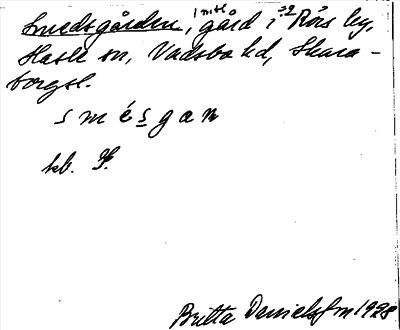 Smedsgården, 1 mtl., gård i Rörs by,
Hasle sn, Vadsbo hd, Skara-
borgsl.
s m é s g a n
kb.
Britta Danielsson 1928